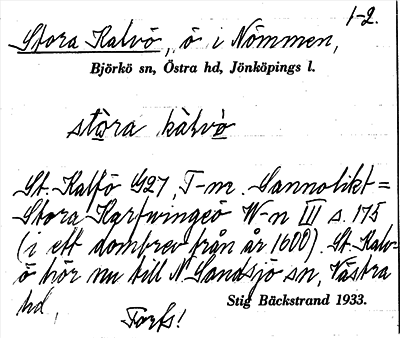 1-2.
Stora Kalvö, ö i Nömmen,
Björkö sn, Östra hd, Jönköpings l.
stòra kàlvö
St. Kalfö G27, T-m. Sannolikt =
Stora Kartwingeö W-n III s. 175
(i ett dombrev från år 1600). St. Kalv-
ö hör nu till N. Sandsjö sn, Västra
hd,
Torfs!
Stig Bäckstrand 1933.